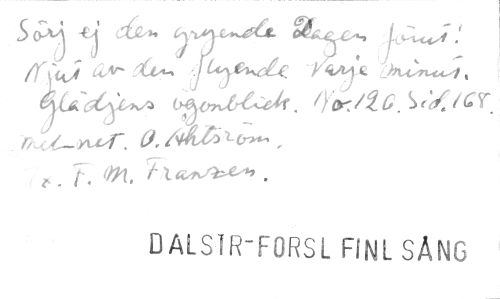 Sörj ej den gryende Dagen förut!
Njut av den flyende varje minut.
Glädjens ögonblick. No. 126. Sid. 168.
mel-net. O. Ahtsröm.
Tx. F. M. Franzen.
DALSTR-FORSL FINL SÅNG